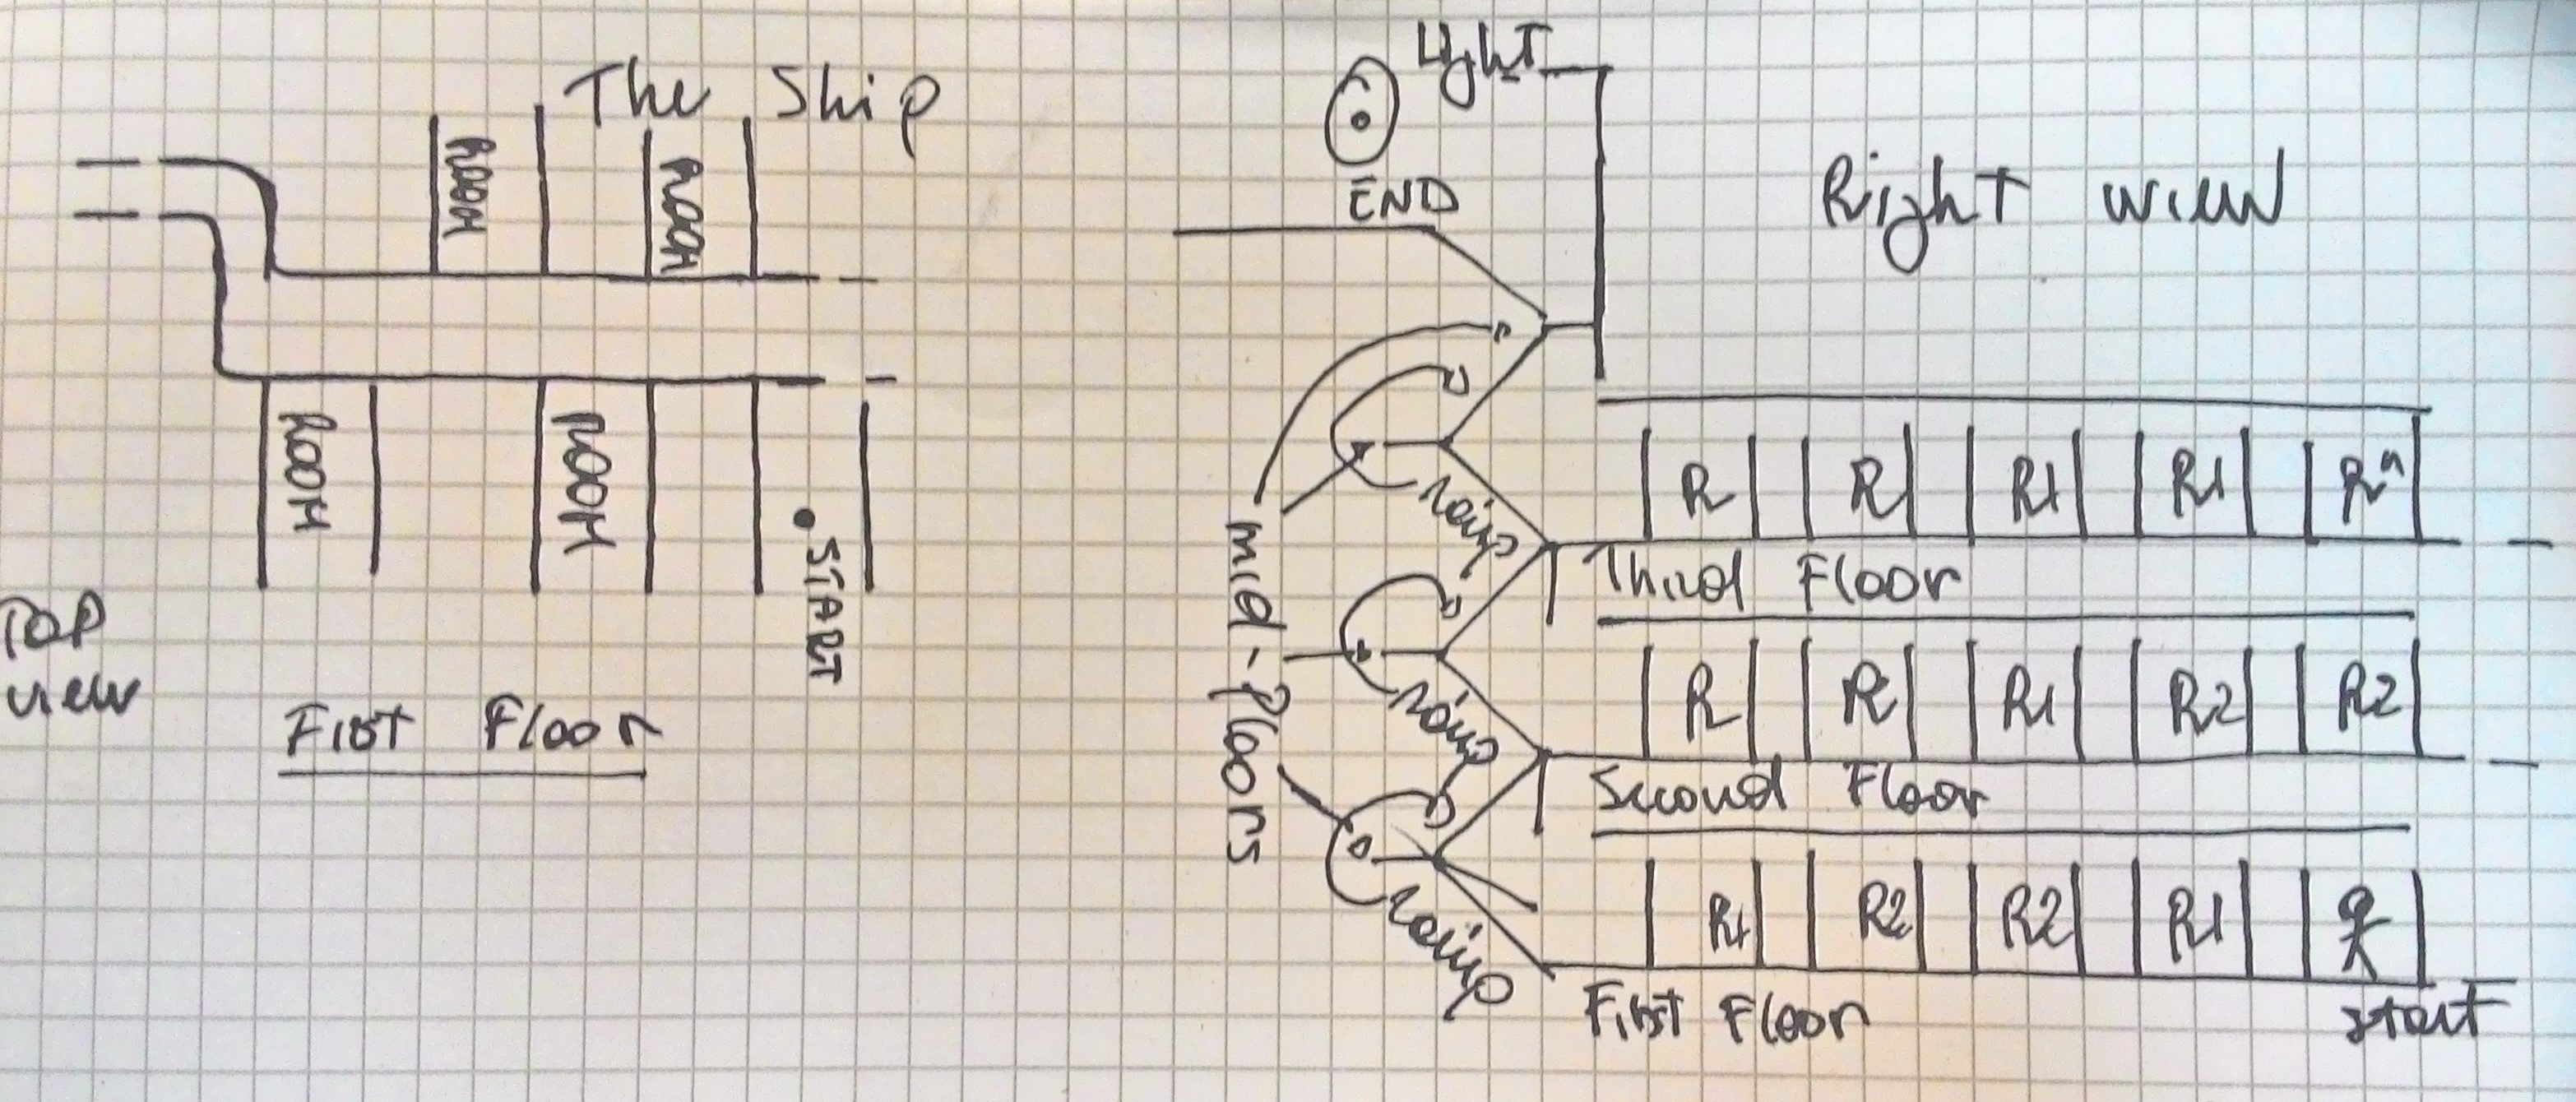 The Ship
ROOM
ROOM
ROOM
ROOM
START
TOP
view
First Floor
Light
END
Right view
mid-floors
ramp
R R R1 R1
Third Floor
ramp
R R R1 R2 R2
Second Floor
ramp
R1 R2 R2 R1
First Floor
start